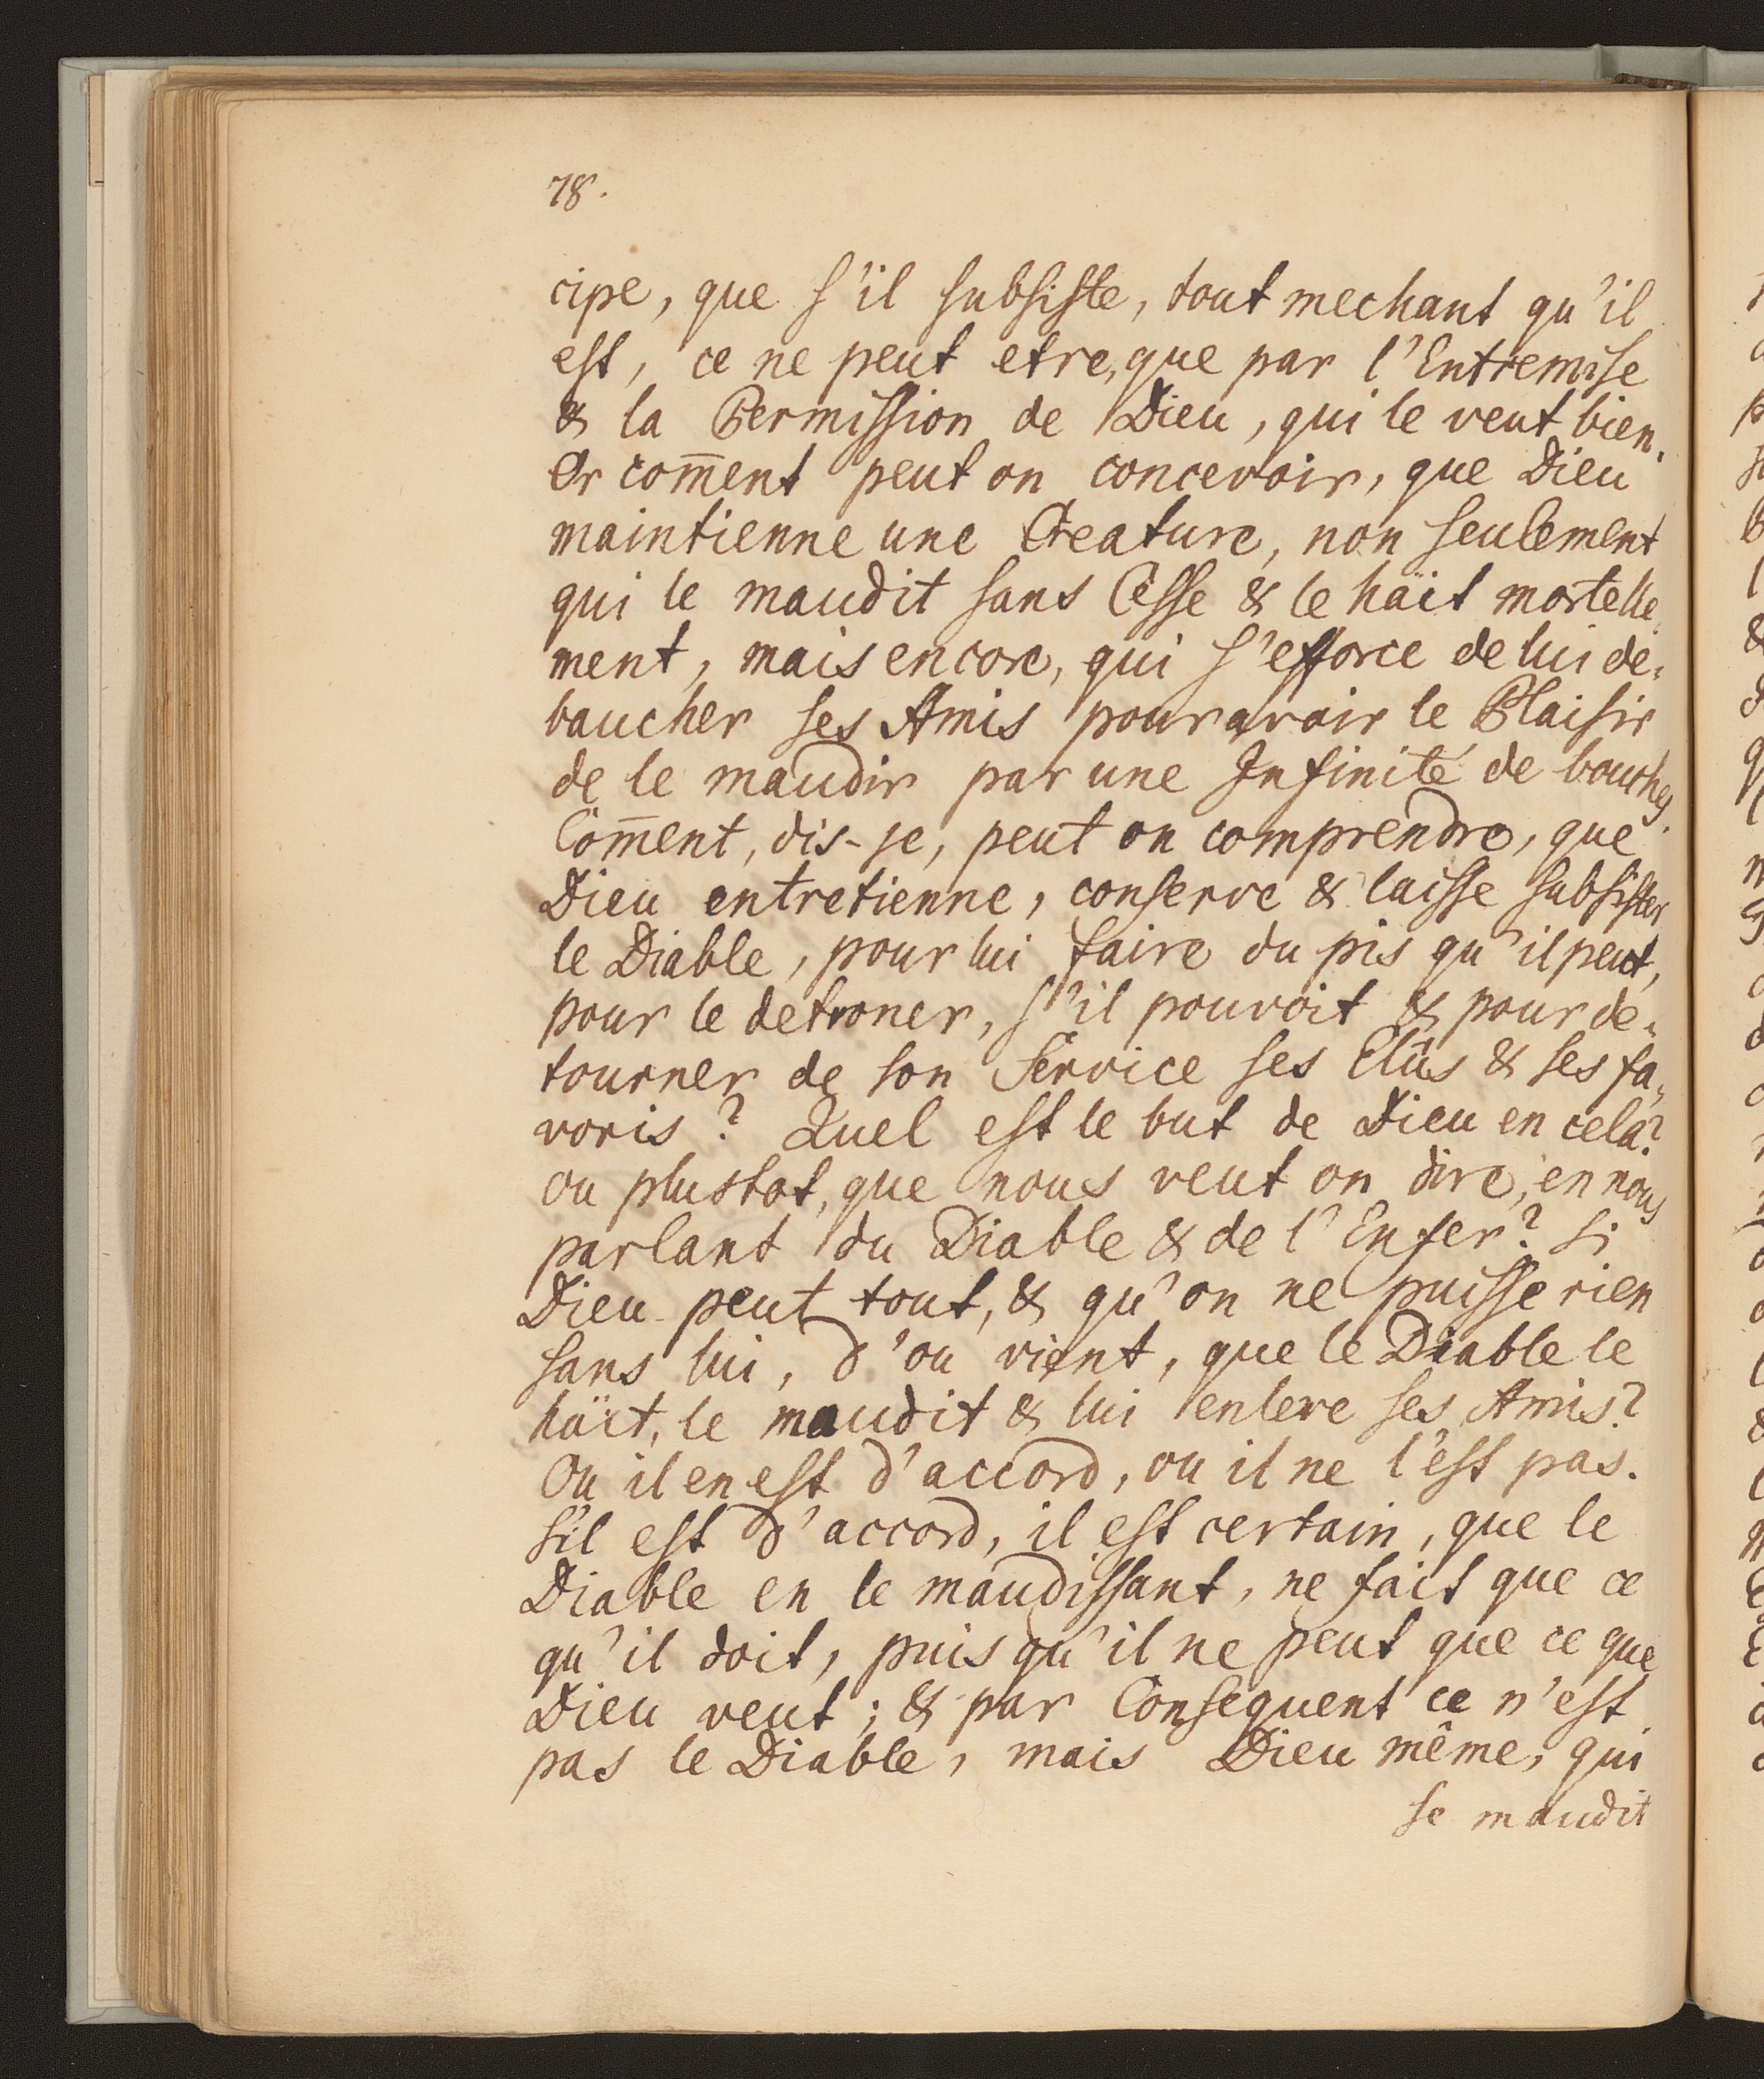 78.
cipe, que s'il subsiste, tout mechant qu'il
est, ce ne peut etre, que par l'Entremise
& la Permission de Dieu, qui le veut bien.
Or com̄ent peut on concevoir, que Dieu
maintienne une Creature, non seulement
qui le maudit sans Cesse & le haït mortelle,
ment, mais encore, qui s'efforce de lui de,
baucher ses Amis pour avoir le Plaisir
de le maudir par une Infinité de bouches.
Com̄ent, dis-je, peut on comprendre, que
Dieu entretienne, conserve & laisse subsister
le Diable, pour lui faire du pis qu'il peut,
pour le detroner, s'il pouvoit & pour de=
tourner de son Service ses Elûs & ses fa,
voris? Quel est le but de Dieu en cela?
ou plustot, que nous veut on dire, en nous
parlant du Diable & de l'Enfer? Si
Dieu peut tout, & qu'on ne puisse rien
sans lui, d'ou vient, que le Diable le
haït, le maudit & lui enleve ses Amis?
Ou il en est d'accord, ou il ne l'est pas.
S'il est d'accord, il est certain, que le
Diable en le maudissant, ne fait que ce
qu'il doit, puis qu'il ne peut que ce que
Dieu veut; & par Consequent ce n'est
pas le Diable, mais Dieu même, qui
se maudit